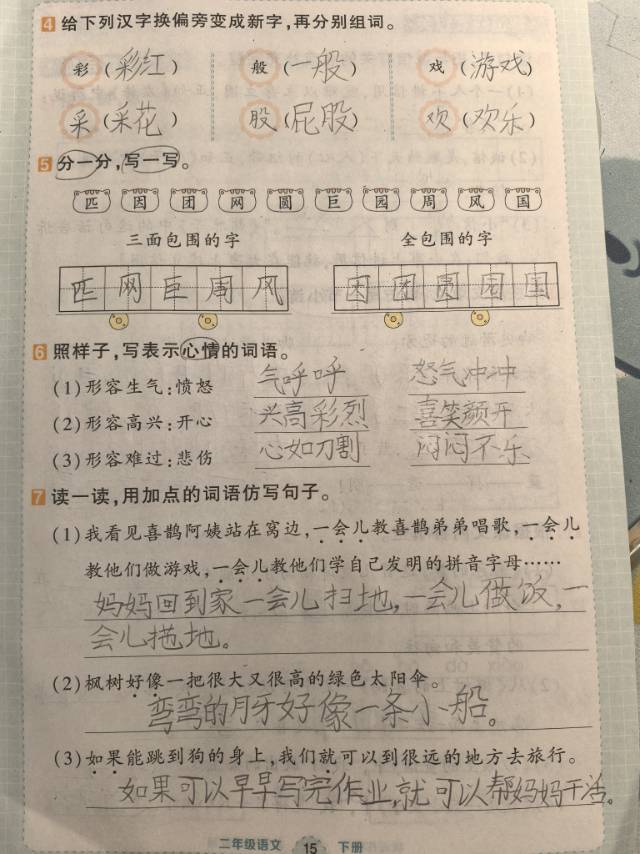 4 给下列汉字换偏旁变成新字,再分别组词。
彩(彩红) 般(一般) 戏(游戏)
采(采花) 股(屁股) 欢(欢乐)
5 分一分,写一写。
匹 因 团 网 圆 巨 园 周 风 国
三面包围的字 全包围的字
匹 网 巨 周 风 因 团 圆 园 国
6 照样子,写表示心情的词语。
(1)形容生气:愤怒 气呼呼 怒气冲冲
(2)形容高兴:开心 兴高彩烈 喜笑颜开
(3)形容难过:悲伤 心如刀割 闷闷不乐
7 读一读,用加点的词语仿写句子。
(1)我看见喜鹊阿姨站在窝边,一会儿教喜鹊弟弟唱歌,一会儿
教他们做游戏,一会儿教他们学自己发明的拼音字母……
妈妈回到家一会儿扫地,一会儿做饭,一
会儿拖地。
(2)枫树好像一把很大又很高的绿色太阳伞。
弯弯的月牙好像一条小船。
(3)如果能跳到狗的身上,我们就可以到很远的地方去旅行。
如果可以早早写完作业,就可以帮妈妈干活。
二年级语文 15 下册